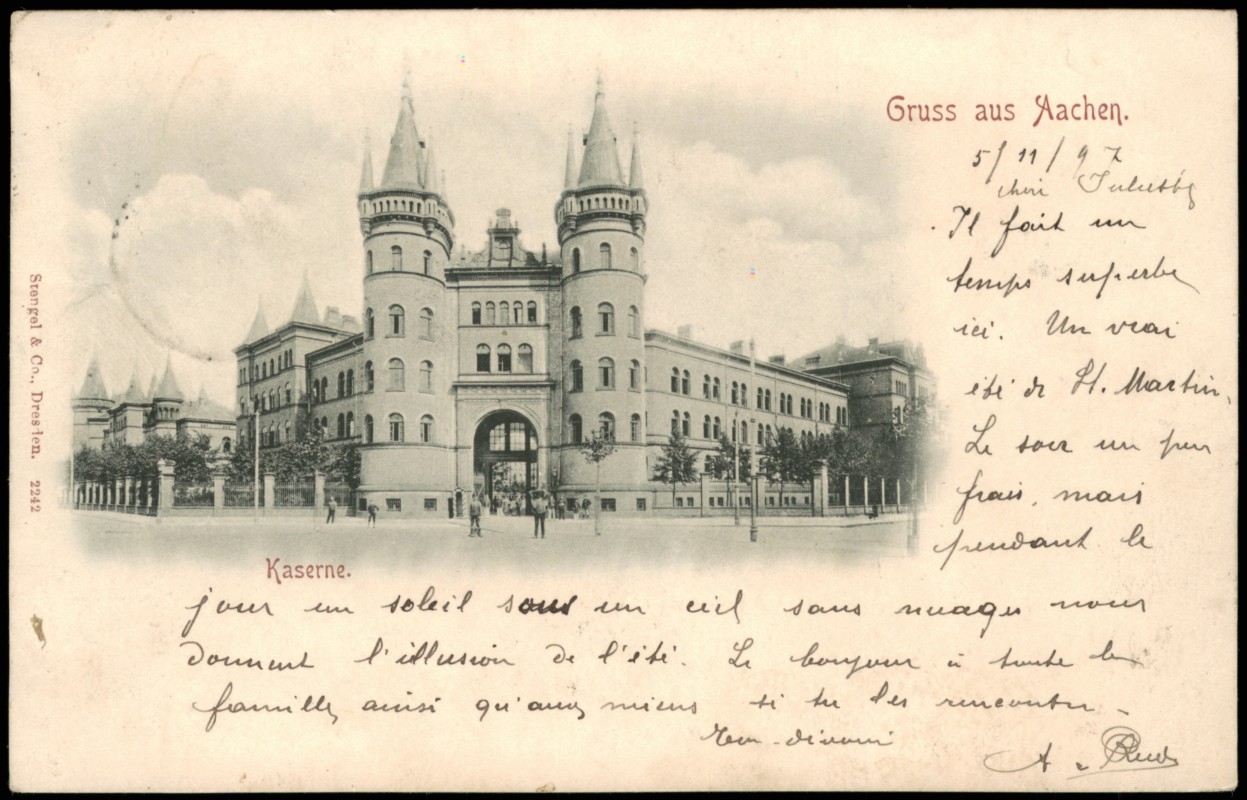 Gruss aus Aachen.
5/11/97
Il fait un
temps superbe
ici. Un vrai
été de St. Martin,
Le soir un peu
frais, mais
pendant le
Stengel & Co., Dresden. 2242
Kaserne.
jour un soleil sous un ciel sans nuages nous
donnent l'illusion de l'été. Le bonjour à toute la
famille, ainsi qu'aux miens si tu les rencontre
A.